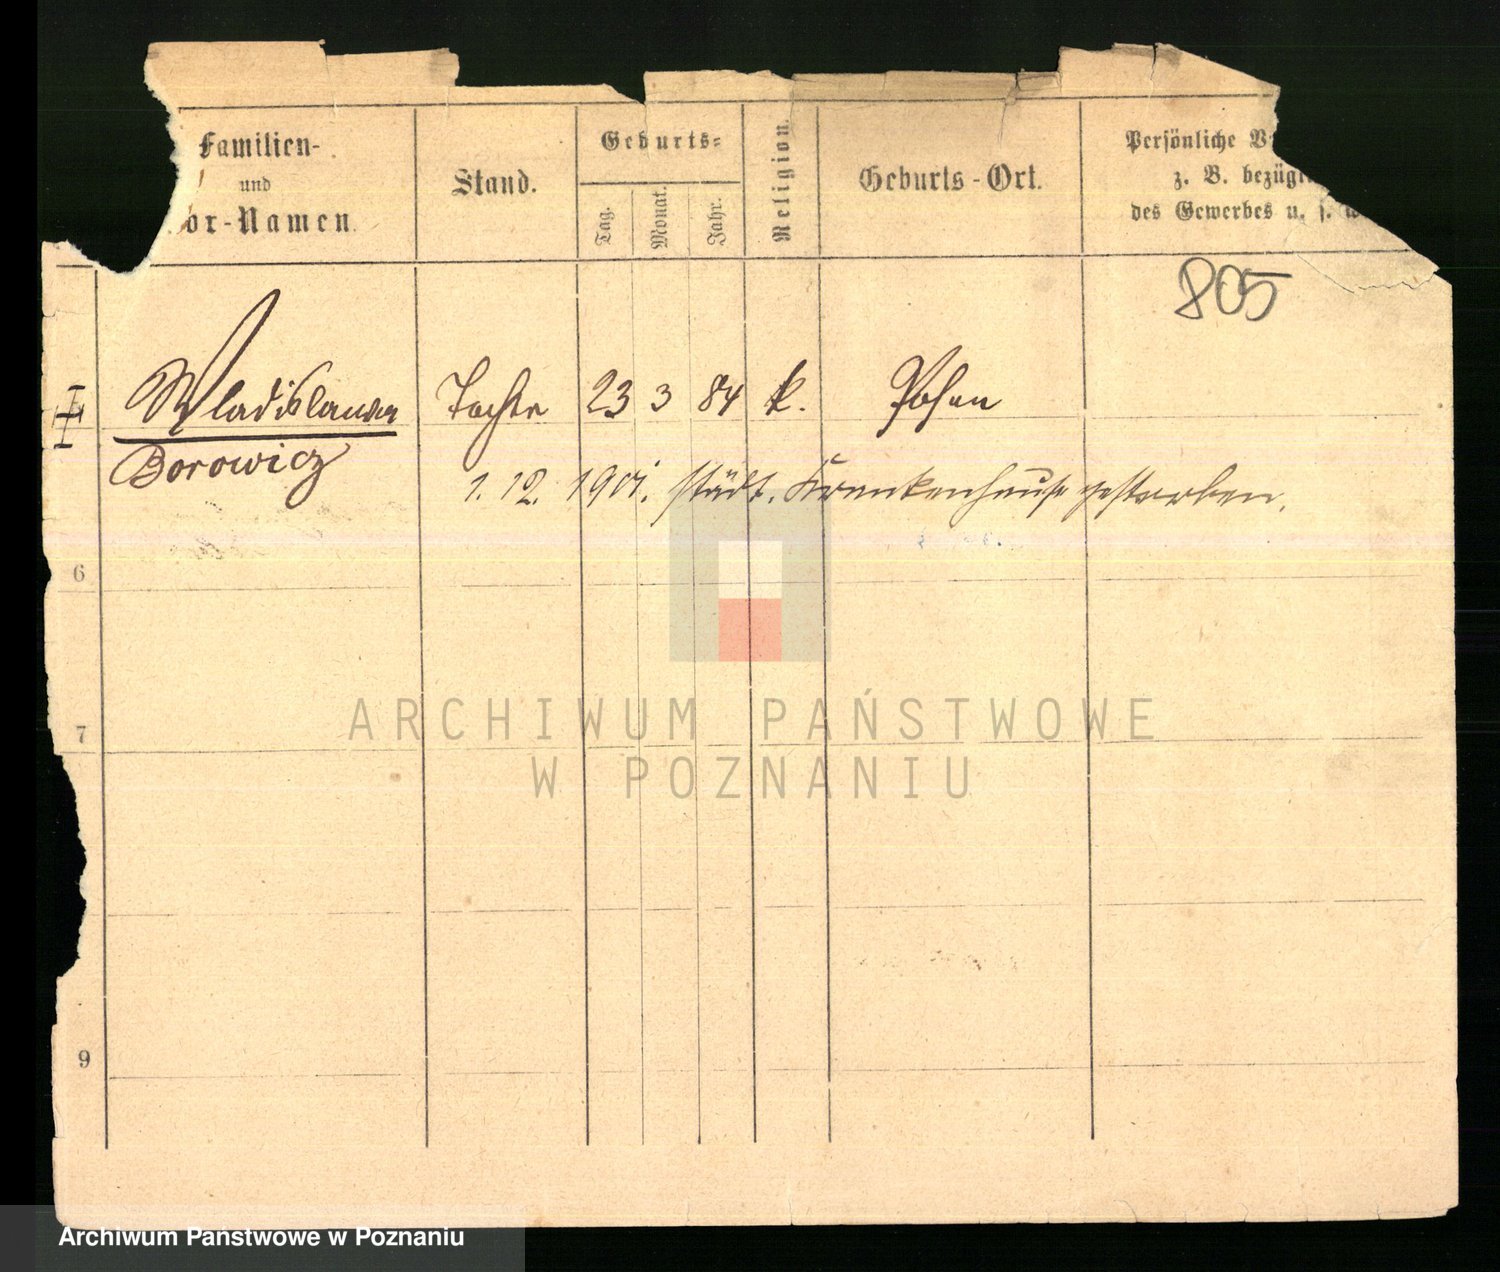 Familien-
und
or-Namen.
Stand.
Geburts-
Tag.
Monat.
Jahr.
Religion.
Geburts-Ort.
Persönliche V
z. B. bezügl
des Gewerbes u. s. w.
805
Wladislawa Tochter 23 3 84 k. Posen
Borowicz
1. 12. 1901. städt. Krankenhause gestorben.
6
7
9
ARCHIWUM PAŃSTWOWE
W POZNANIU
Archiwum Państwowe w Poznaniu